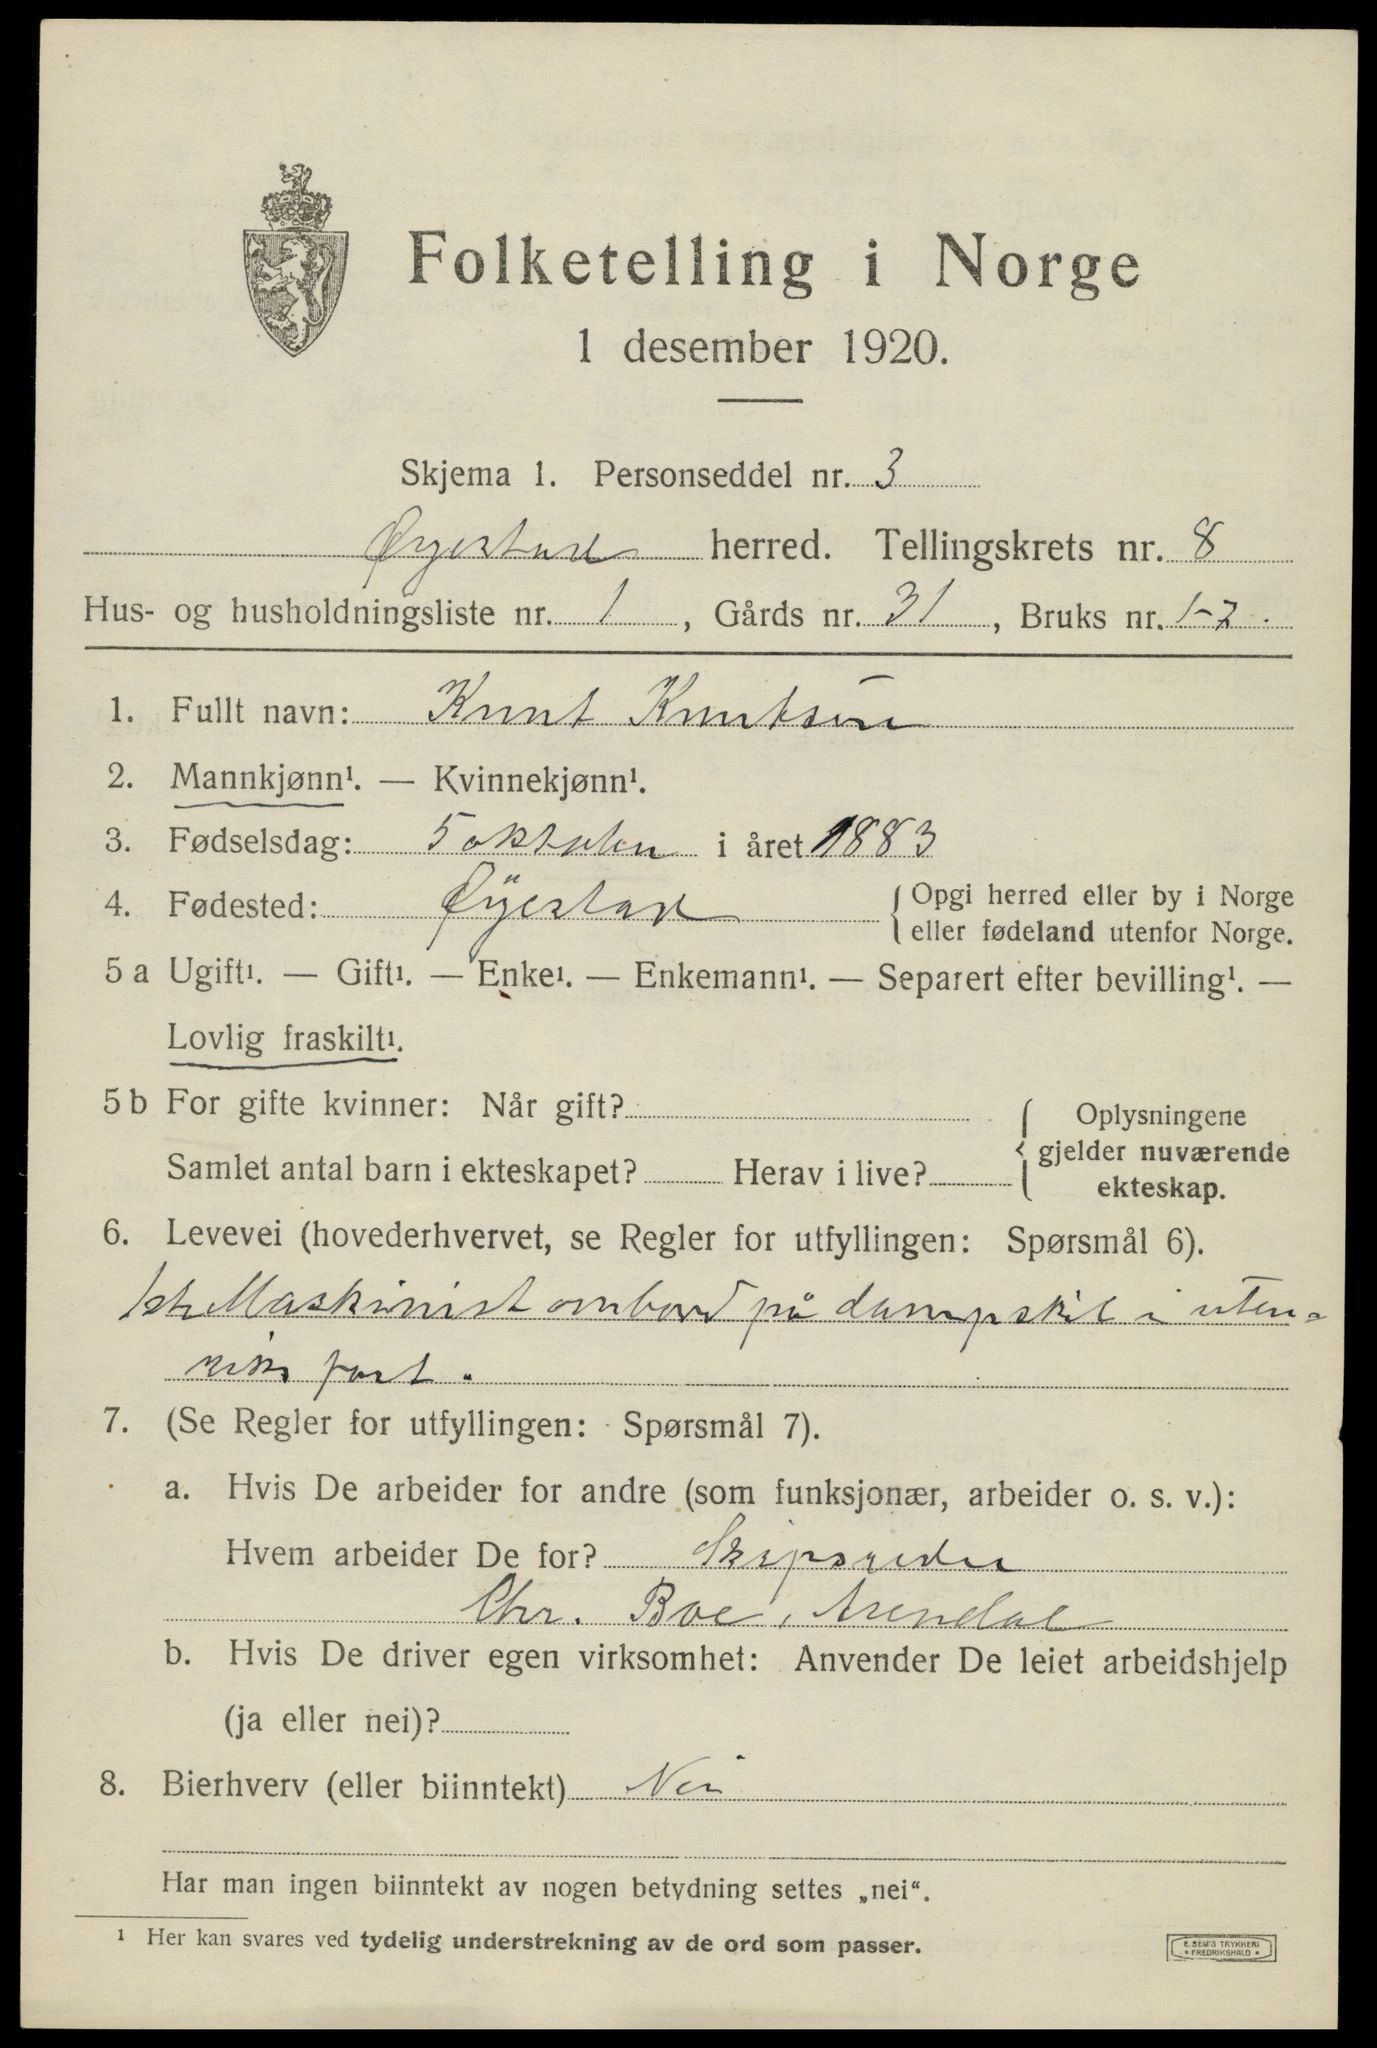 Folketelling i Norge
1 desember 1920.
Skjema 1. Personseddel nr. 3
Øyestad herred. Tellingskrets nr. 8
Hus- og husholdningsliste nr. 1, Gårds nr. 31, Bruks nr. 1-2.
1. Fullt navn: Knut Knutsen
2. Mannkjønn¹. — Kvinnekjønn¹.
3. Fødselsdag: 5 oktober i året 1883
4. Fødested: Øyestad { Opgi herred eller by i Norge
eller fødeland utenfor Norge.
5 a Ugift¹. — Gift¹. — Enke¹. — Enkemann¹. — Separert efter bevilling¹. —
Lovlig fraskilt¹.
5 b For gifte kvinner: Når gift?
Samlet antal barn i ekteskapet? Herav i live?
{ Oplysningene
gjelder nuværende
ekteskap.
6. Levevei (hovederhvervet, se Regler for utfyllingen: Spørsmål 6).
1ste Maskinist ombord på dampskib i uten-
riks fart.
7. (Se Regler for utfyllingen: Spørsmål 7).
a. Hvis De arbeider for andre (som funksjonær, arbeider o. s. v.):
Hvem arbeider De for? Skipsreder
Chr. Boe, Arendal
b. Hvis De driver egen virksomhet: Anvender De leiet arbeidshjelp
(ja eller nei)?
8. Bierhverv (eller biinntekt) Nei
Har man ingen biinntekt av nogen betydning settes „nei“.
¹ Her kan svares ved tydelig understrekning av de ord som passer.
E. SEM'S TRYKKERI
* FREDRIKSHALD *